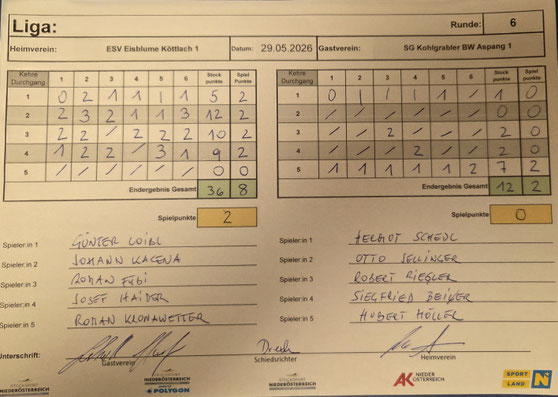 Liga: Runde: 6
Heimverein: ESV Eisblume Köttlach 1 Datum: 29.05.2026 Gastverein: SG Kohlgraber BW Aspang 1
Kehre Durchgang 1 2 3 4 5 6 Stock punkte Spiel Punkte
1 0 2 1 1 1 1 5 2
2 2 3 2 1 1 3 12 2
3 2 2 / 2 2 2 10 2
4 1 2 2 / 3 1 9 2
5 / / / / / / 0 0
Endergebnis Gesamt 36 8
Spielpunkte 2
Kehre Durchgang 1 2 3 4 5 6 Stock punkte Spiel punkte
1 0 1 / 1 0
2 / / / / / / 0 0
3 / / 2 / / / 2 0
4 / / / 2 / / 2 0
5 1 1 1 1 1 2 7 2
Endergebnis Gesamt 12 2
Spielpunkte 0
Spieler:in 1 GÜNTER LOIBL
Spieler:in 2 JOHANN KACENA
Spieler:in 3 ROMAN
Spieler:in 4 JOSEF HAIDER
Spieler:in 5 ROMAN KRONAWETTER
Spieler:in 1 HELMUT SCHEDL
Spieler:in 2 OTTO SELLINGER
Spieler:in 3 ROBERT RIEGLER
Spieler:in 4 SIEGFRIED
Spieler:in 5 HUBERT HÖLLER
Unterschrift: Gastverein Schiedsrichter Heimverein
NIEDERÖSTERREICH POLYGON NIEDERÖSTERREICH AK NIEDER ÖSTERREICH SPORT LAND N